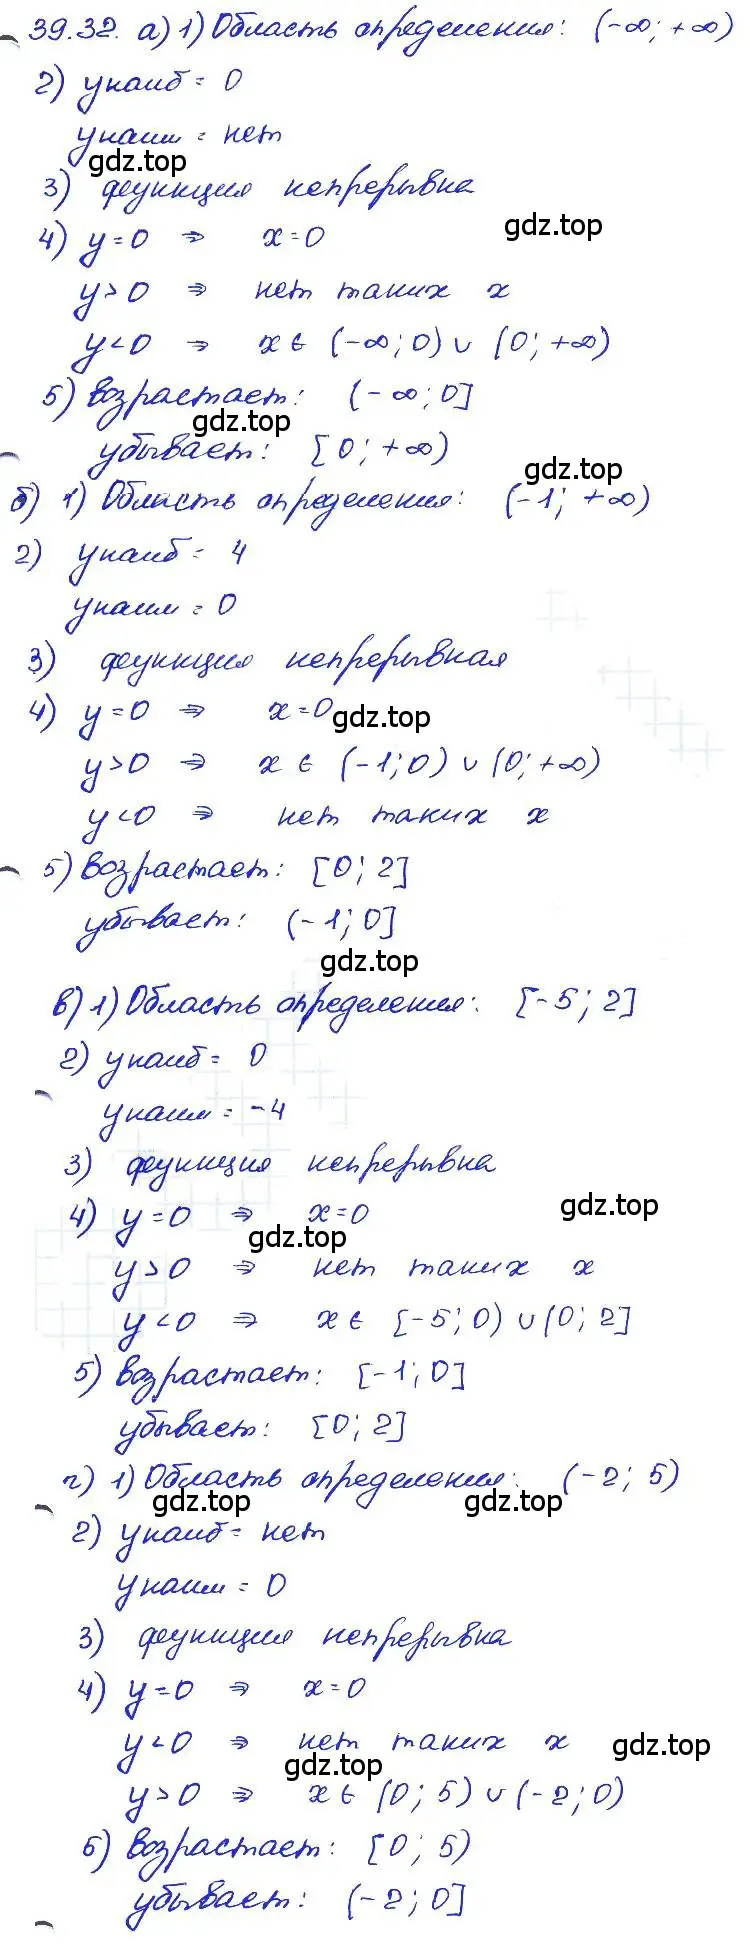 39.32. а) 1) Область определения: (-∞; +∞)
2) унаиб = 0
унаим = нет
gdz.top
3) функция непрерывна
gdz.top
4) y=0 ⇒ x=0
y>0 ⇒ нет таких x
y<0 ⇒ x∈ (-∞; 0) ∪ (0; +∞)
5) возрастает: (-∞; 0]
gdz.top
убывает: [0; +∞)
gdz.top
б) 1) Область определения: (-1; +∞)
2) унаиб = 4
унаим = 0
3) функция непрерывная
4) y=0 ⇒ x=0
gdz.top
y>0 ⇒ x ∈ (-1; 0) ∪ (0; +∞)
y<0 ⇒ нет таких x
5) возрастает: [0; 2]
убывает: (-1; 0]
gdz.top
в) 1) Область определения: [-5; 2]
2) унаиб = 0
унаим = -4
3) функция непрерывна
gdz.top
4) y=0 ⇒ x=0
gdz.top
y>0 ⇒ нет таких x
y<0 ⇒ x∈ [-5; 0) ∪ (0; 2]
5) возрастает: [-1; 0]
убывает: [0; 2]
г) 1) Область определения: (-2; 5)
gdz.top gdz.top
2) унаиб = нет
унаим = 0
3) функция непрерывна
4) y=0 ⇒ x=0
y<0 ⇒ нет таких x
gdz.top
gdz.top
y>0 ⇒ x∈ (0; 5) ∪ (-2; 0)
5) возрастает: [0; 5)
убывает: (-2; 0]